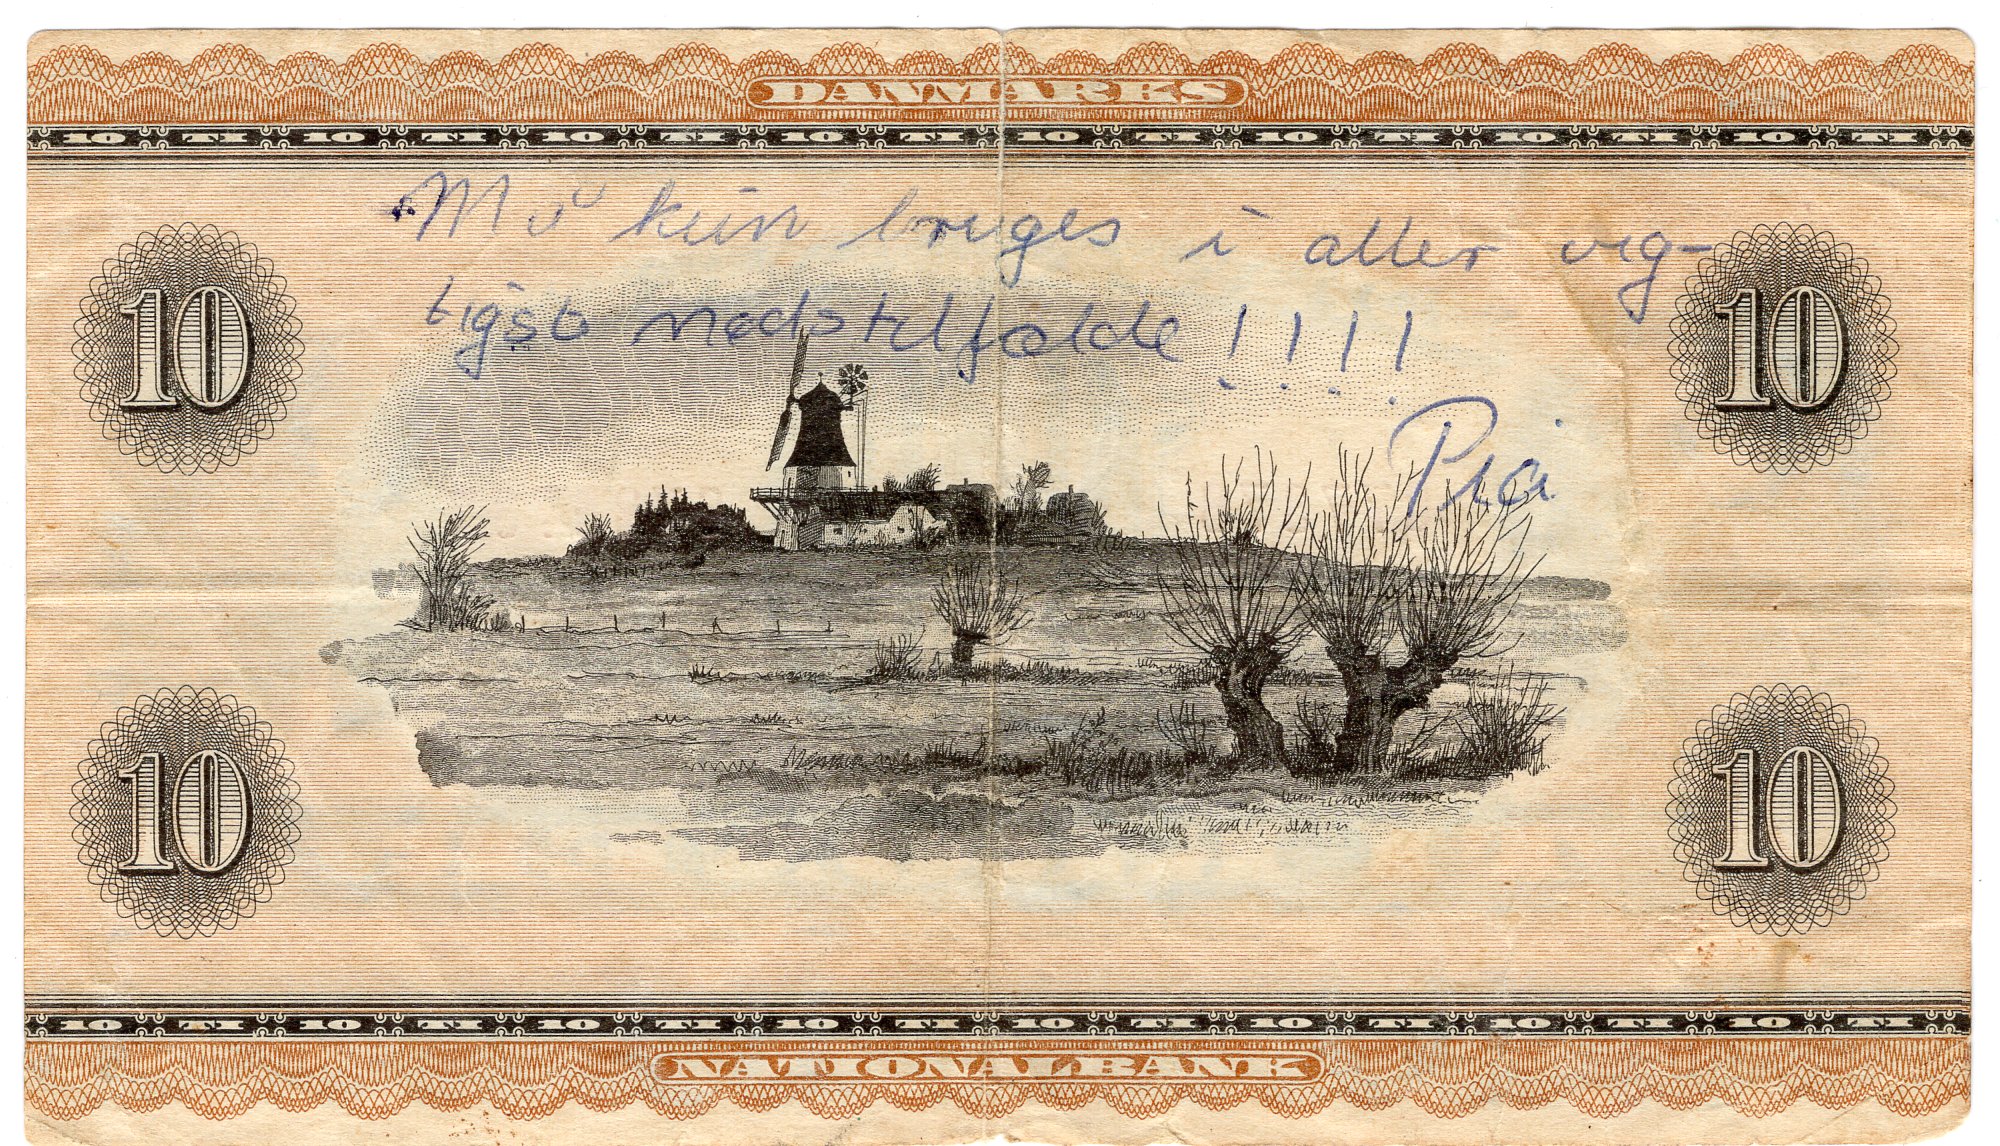 DANMARKS
10 TI 10 TI 10 TI 10 TI 10 TI 10 TI 10 TI 10 TI
Må kun bruges i aller vig-
tigste nødstilfælde!!!!
Pia
10 10
10 10
10 TI 10 TI 10 TI 10 TI 10 TI 10 TI 10 TI 10 TI
NATIONALBANK